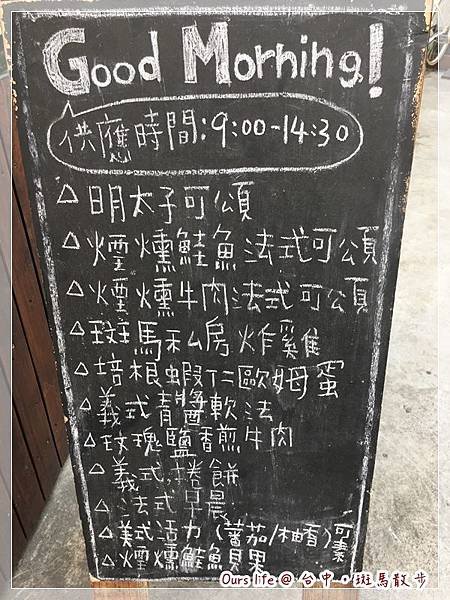 Good Morning!
供應時間:9:00-14:30
△明太子可頌
△煙燻鮭魚法式可頌
△煙燻牛肉法式可頌
△斑馬私房炸雞
△培根蝦仁歐姆蛋
△義式青醬軟法
△玫瑰鹽香煎牛肉
△義式捲餅
△法式早晨
△美式活力(蕃茄/柚香)可素
△煙燻鮭魚貝果
Ours life @ 台中。斑馬散步